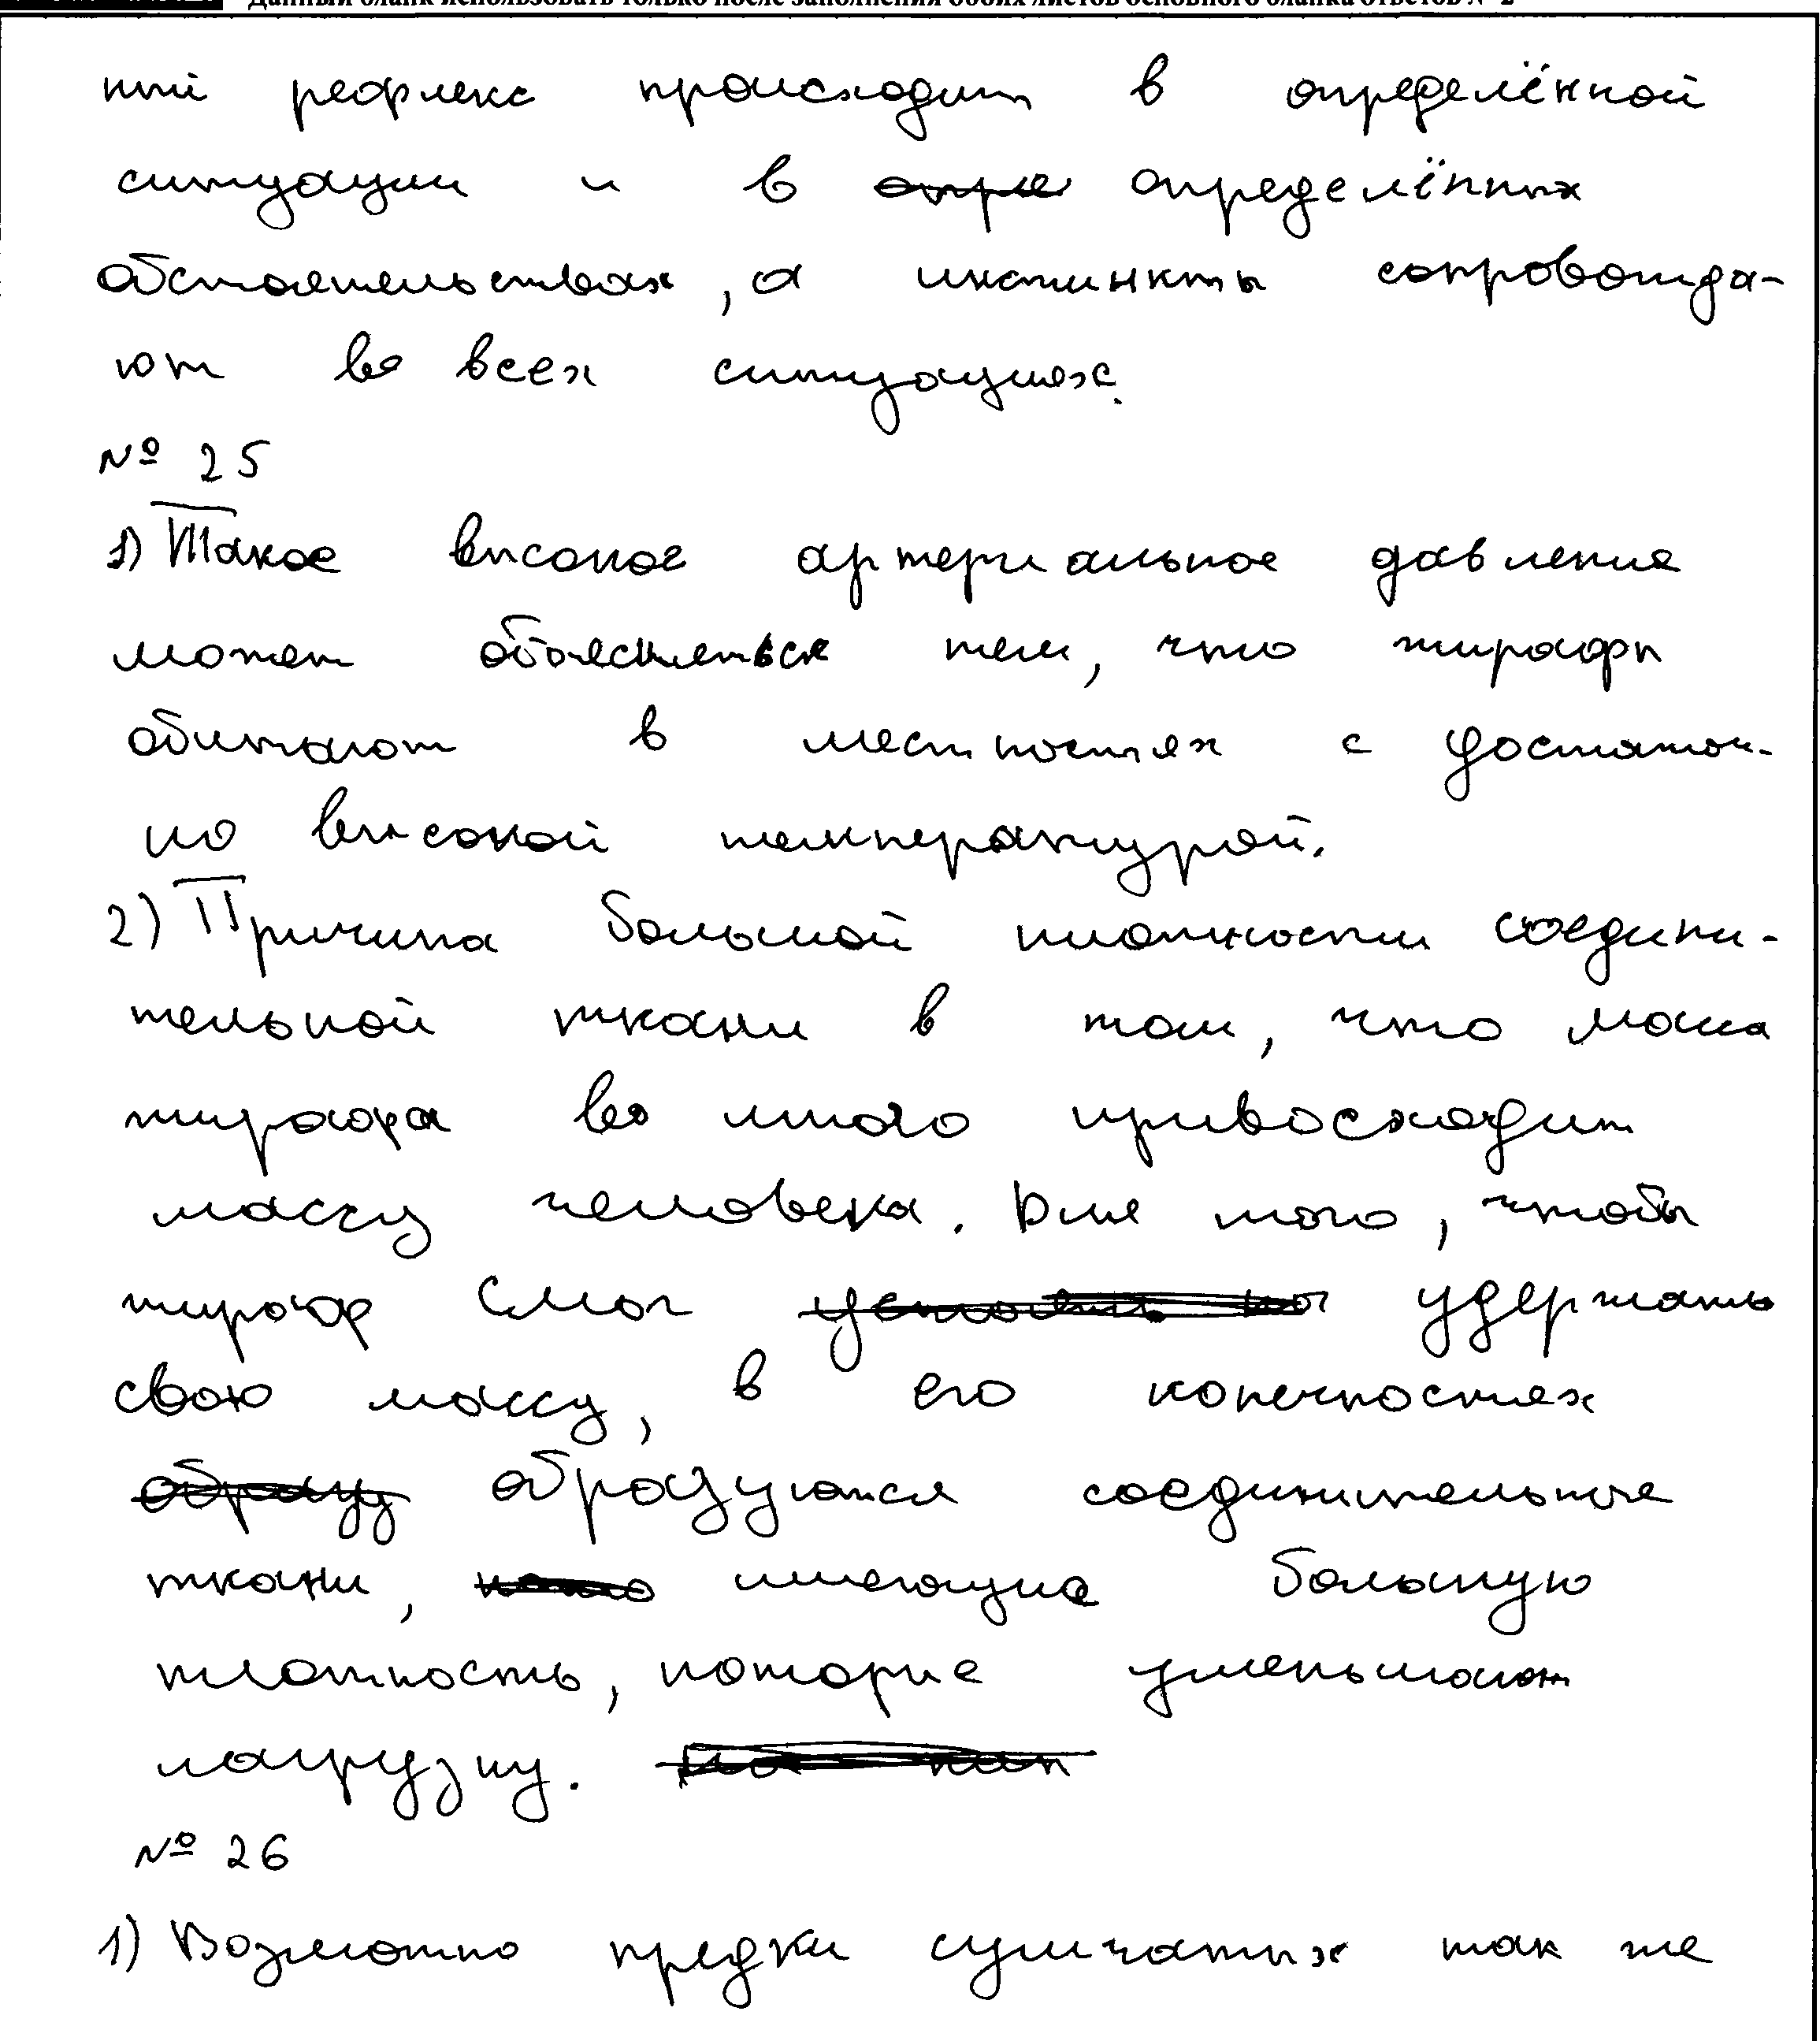 Данный бланк использовать только после заполнения обоих листов основного бланка ответов № 2
ный рефлекс происходит в определённой
ситуации и в опре определённых
обстоятельствах, а инстинкты сопровожда-
ют во всех ситуациях.
№ 25
1) Такое высокое артериальное давление
может объясняться тем, что жирафы
обитают в местностях с достаточ-
но высокой температурой.
2) Причина большой плотности соедини-
тельной ткани в том, что масса
жирафа во много привосходит
массу человека. Для того, чтобы
жираф смог удержать
свою массу, в его конечностях
образу образуются соединительные
ткани, имеющие большую
плотность, которые уменьшают
нагрузку.
№ 26
1) Возможно предки сумчатых так же